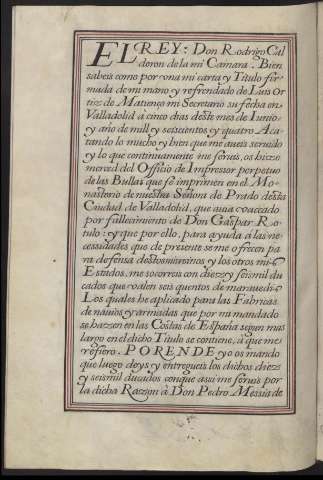 EL REY: Don Rodrigo Cal
deron de la mi Camara. Bien
sabeis como por vna mi carta y Titulo fir
mada de mi mano y refrendado de Luis Or
tiz de Matienço mi Secretario su fecha en
Valladolid a cinco dias deste mes de Iunio
y año de mill y seiscientos y quatro Aca
tando lo mucho y bien que me aueis seruido
y lo que continuamente me seruis, os hizze
merced del Officio de Impressor perpetuo
de las Bullas que se imprimen en el Mo
nasterio de nuestra Señora de Prado desta
Ciudad de Valladolid, que auia vaccado
por fallescimiento de Don Gaspar Ro
tulo: y que por ello, para ayuda a las ne
cessidades que de presente se me ofrecen pa
ra defensa destos mis reinos y los otros mis
Estados, me socorreis con diez y seis mil du
cados que valen seis quentos de marauedis
Los quales he aplicado para las Fabricas
de nauios y armadas que por mi mandado
se hazzen en las Costas de España segun mas
largo en el dicho Titulo se contiene, a que me
refiero. PORENDE yo os mando
que luego deys y entregueis los dichos diezz
y seis mil ducados conque assi me seruis por
la dicha Razzon a Don Pedro Messia de